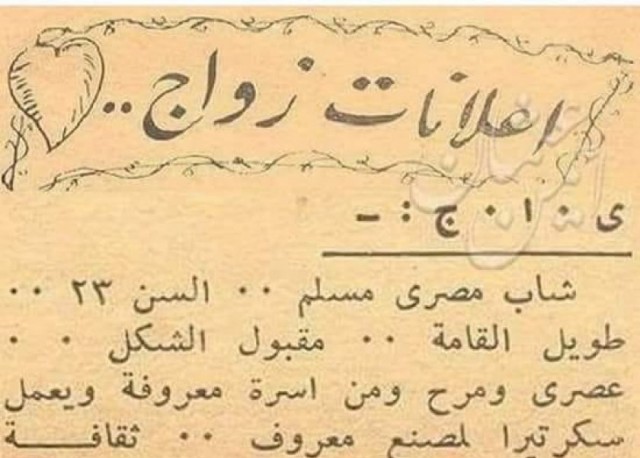 اعلانات زواج ..
ى ٠ ا ٠ ج : ــ
شاب مصرى مسلم ٠٠ السن ٢٣ ٠٠
طويل القامة ٠٠ مقبول الشكل ٠ ٠
عصرى ومرح ومن اسرة معروفة ويعمل
سكرتيرا لمصنع معروف ٠٠ ثقافـــة